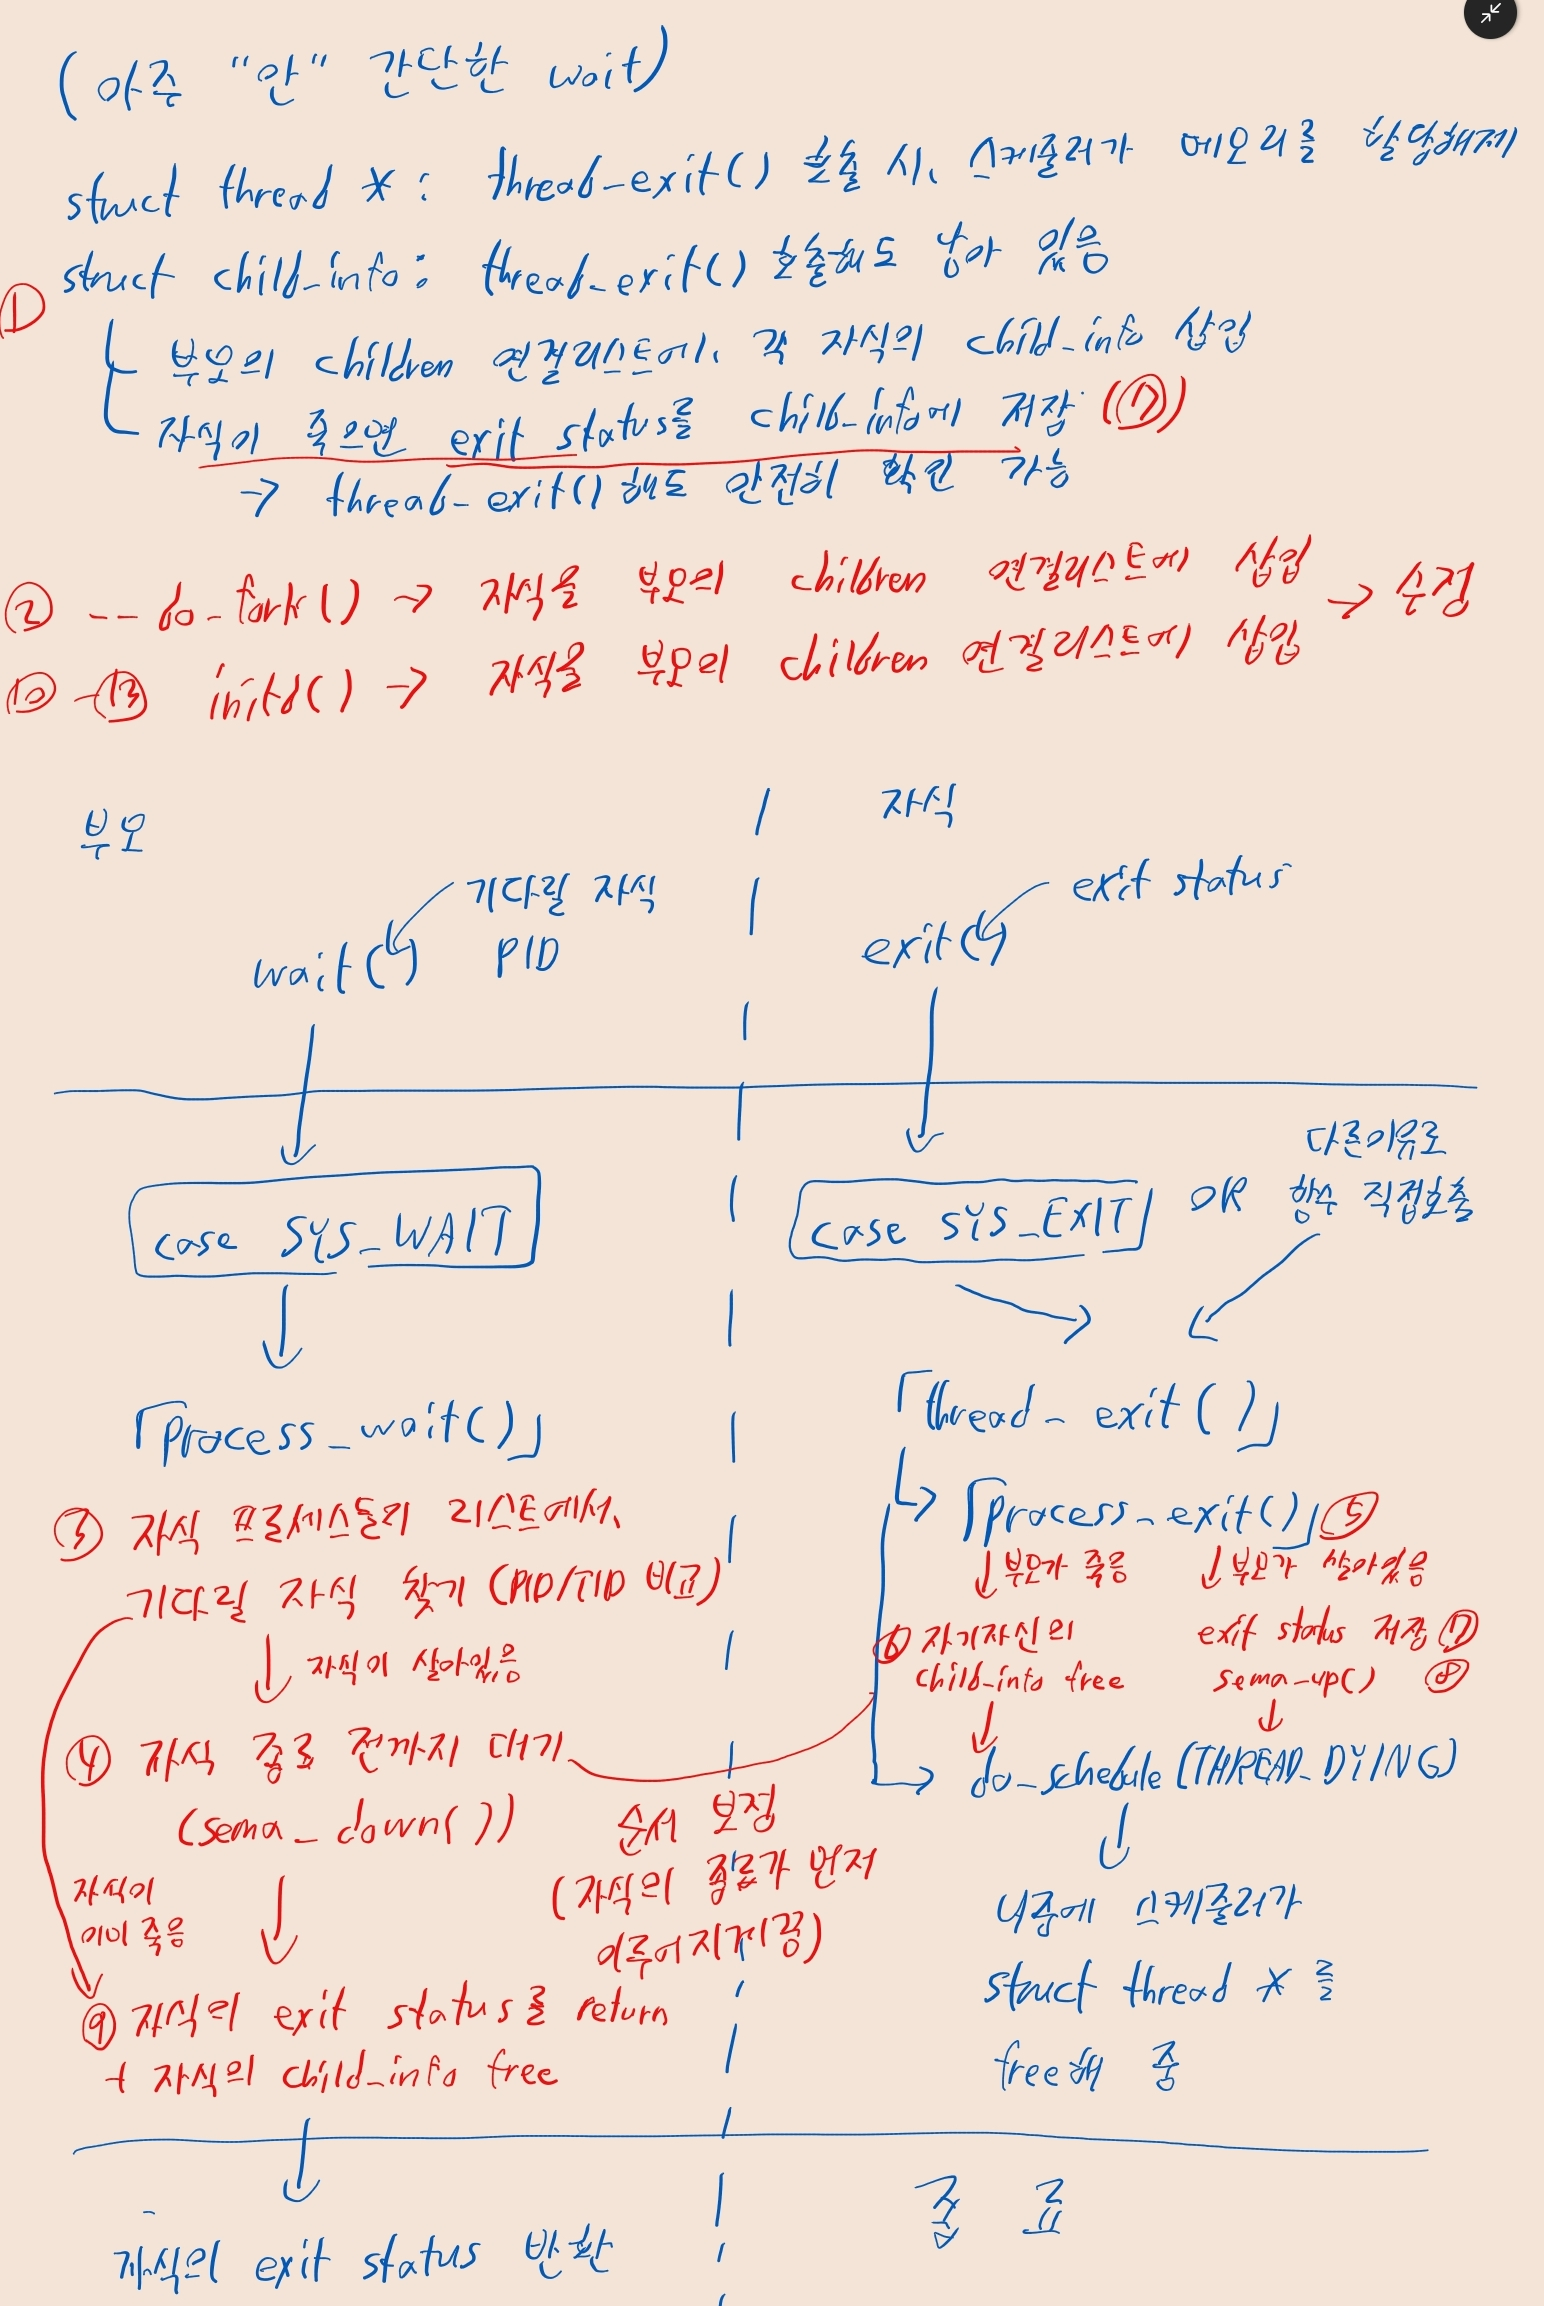 (아주 "안" 간단한 wait)
struct thread * : thread_exit() 호출 시, 스케줄러가 메모리를 할당해제
① struct child_info : thread_exit() 호출해도 남아 있음
부모의 children 연결리스트에, 각 자식의 child_info 삽입
자식이 죽으면 exit status를 child_info에 저장 (⑦)
→ thread_exit() 해도 안전히 확인 가능
② __do_fork() → 자식을 부모의 children 연결리스트에 삽입 → 수정
⑩-⑬ initd() → 자식을 부모의 children 연결리스트에 삽입
부모
자식
기다릴 자식
PID
wait()
exit status
exit()
case SYS_WAIT
case SYS_EXIT
OR
다른이유로
함수 직접호출
「process_wait()」
「thread_exit()」
↳ 「process_exit()」 ⑤
③ 자식 프로세스들의 리스트에서,
기다릴 자식 찾기 (PID/TID 비교)
↓ 부모가 죽음
↓ 부모가 살아있음
⑥ 자기자신의
child_info free
exit status 저장 ⑦
sema_up() ⑧
↓ 자식이 살아있음
④ 자식 종료 전까지 대기
(sema_down())
순서 보정
(자식의 종료가 먼저
이루어지게끔)
do_schedule(THREAD_DYING)
자식이
이미 죽음
나중에 스케줄러가
struct thread * 를
free해 줌
⑨ 자식의 exit status를 return
+ 자식의 child_info free
자식의 exit status 반환
종료